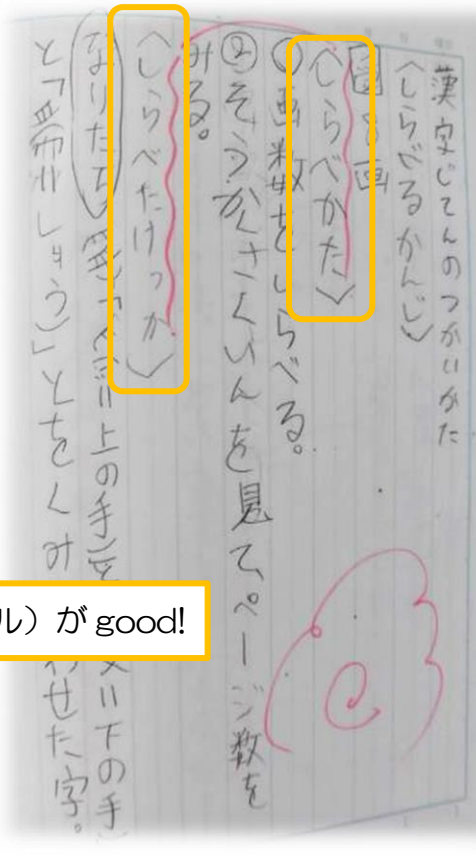 漢字じてんのつかいかた
〈しらべるかんじ〉
8画
〈しらべかた〉
①画数をしらべる。
②そうかくさくいんを見て、ページ数を
みる。
〈しらべたけっか〉
なりたち 上の手 下の手
と「 しゅう)」とをくみ わせた字。
ル）が good!